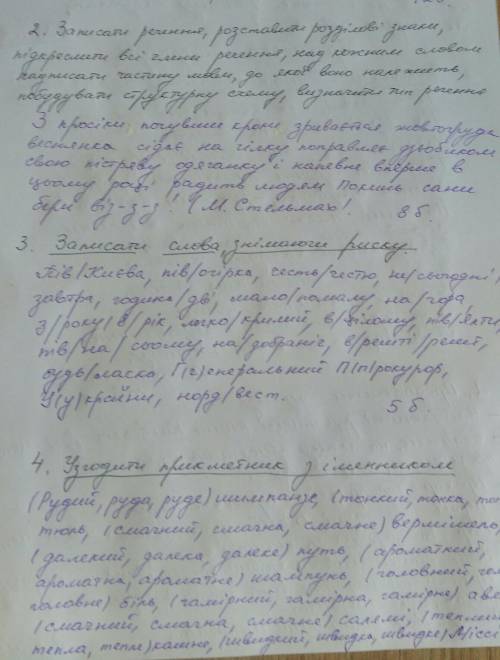 2. Записати речення, розставити розділові знаки,
підкреслити всі члени речення, над кожним словом
надписати частину мови, до якої воно належить,
побудувати структурну схему, визначити тип речення
З просіки почувши кроки зривається жовтогруда
веснянка сідає на гілку поправляє дзьобиком
свою пістряву одяганку і напевне вперше в
цьому році радить людям Покинь сани
бери віз-з-з! (М. Стельмах). 8 б.
3. Записати слова, знімаючи риску.
Пів/Києва, пів/огірка, честь/честю, не/сьогодні/
завтра, година/дві, мало/помалу, на/гора,
з/року/в/рік, легко/крилий, в/цілому, пів/Ялти,
пів/на/сьому, на/добраніч, в/решті/решт,
будь/ласка, Г(г)енеральний П(п)рокурор,
У(у)країни, норд/вест. 5 б.
4. Узгодити прикметник з іменником
(Рудий, руда, руде) шимпанзе, (тонкий, тонка,
тюль, (смачний, смачна, смачне) вермішель,
(далекий, далека, далеке) путь, (ароматний,
ароматна, ароматне) шампунь, (головний,
головне) біль, (галірний, галірна, галірне)
(смачний, смачна, смачне) салямі, (теплий,
тепла, тепле) кашне, (швидкий, швидка, швидке)